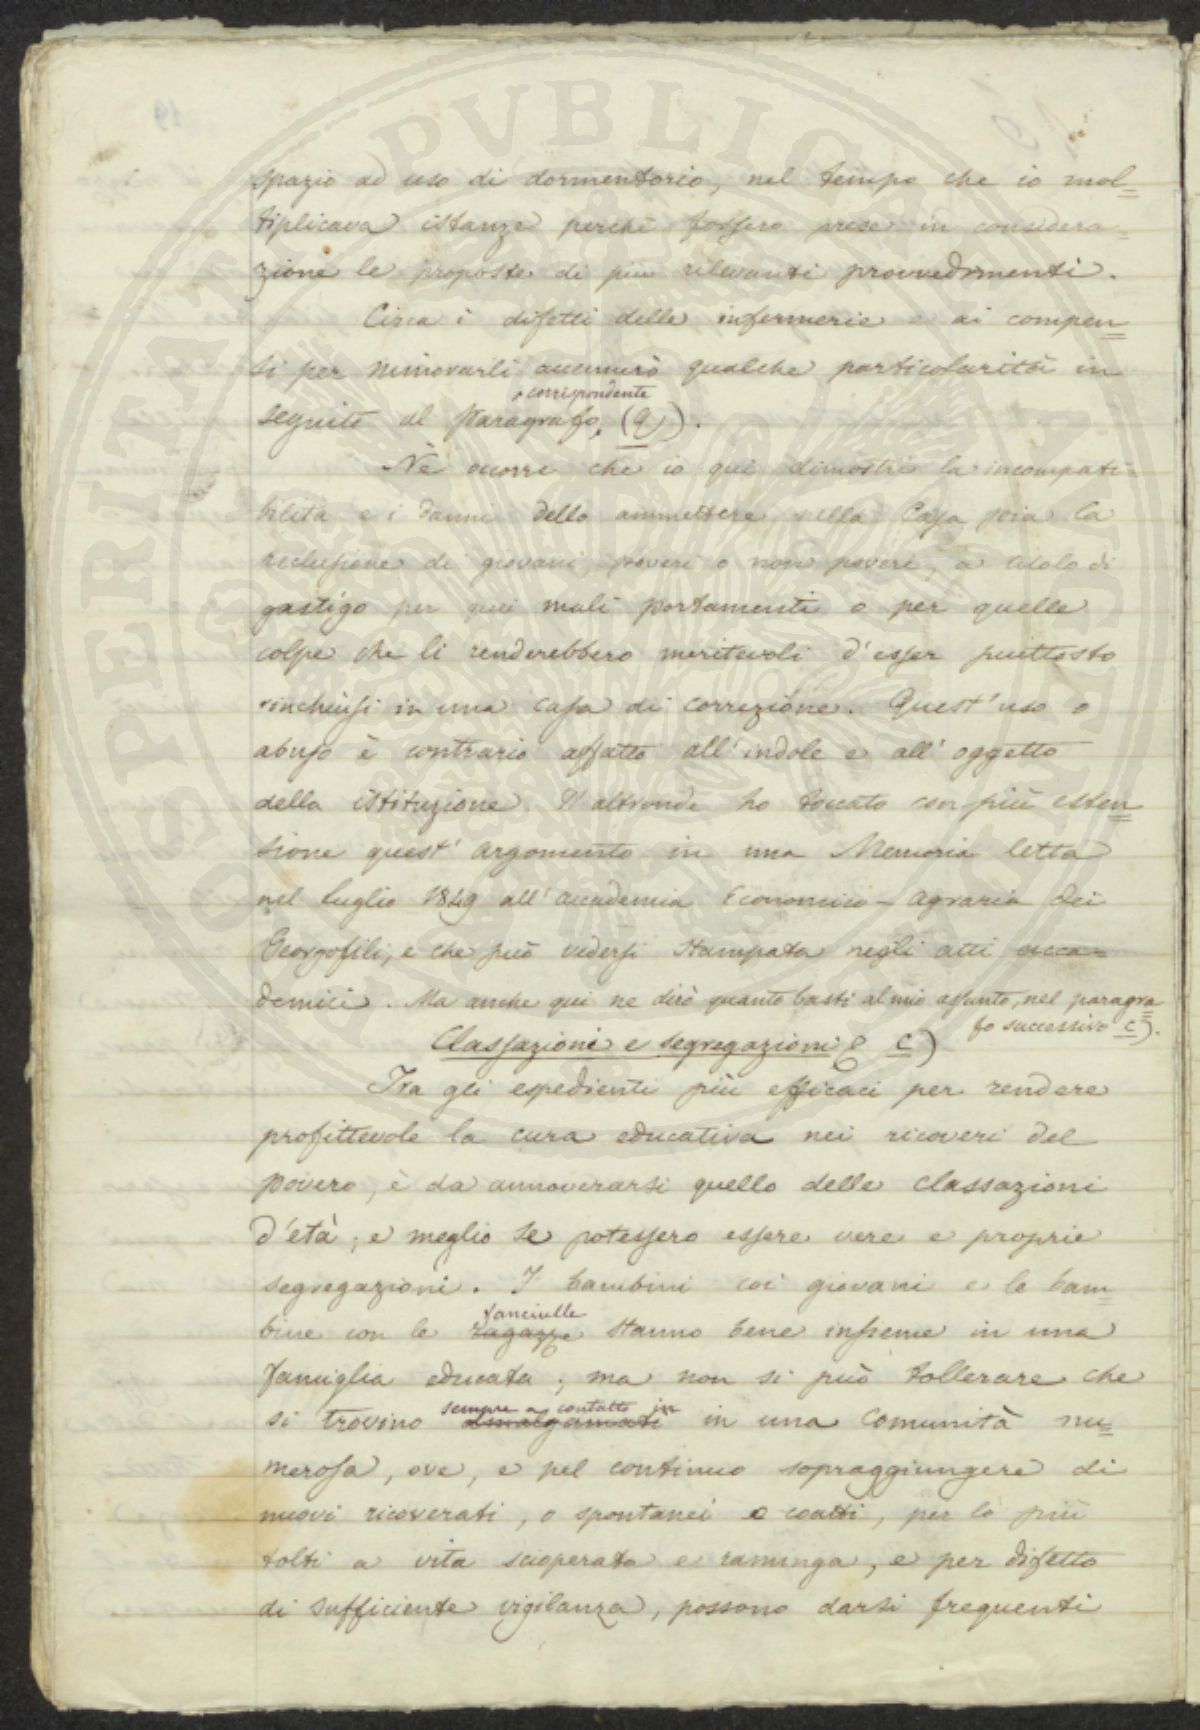 spazio ad uso di dormentorio, nel tempo che io mol=
tiplicava istanze perchè fossero prese in considera=
zione le proposte di più rilevanti provvedimenti.
Circa i difetti delle infermerie e ai compen=
si per minorarli accennerò qualche particolarità in
corrispondente
seguito al Paragrafo (q).
Nè occorre che io qui dimostri la incompati=
bilità e i danni dello ammettere nella Casa pia la
reclusione di giovani, poveri o non poveri, a titolo di
gastigo per quei mali portamenti o per quelle
colpe che li renderebbero meritevoli d'esser piuttosto
rinchiusi in una casa di correzione. Quest'uso o
abuso è contrario affatto all'indole e all'oggetto
della istituzione. D'altronde ho toccato con più esten=
sione quest'argomento in una Memoria letta
nel luglio 1849 all'Accademia Economico-agraria dei
Georgofili, e che può vedersi stampata negli atti acca=
demici. Ma anche qui ne dirò quanto basti al mio assunto, nel paragra=
fo successivo c).
Classazioni e segregazioni c)
Tra gli espedienti più efficaci per rendere
profittevole la cura educativa nei ricoveri del
povero, è da annoverarsi quello delle classazioni
d'età; e meglio se potessero essere vere e proprie
segregazioni. I bambini coi giovani e le bam=
fanciulle
bine con le ragazze stanno bene insieme in una
famiglia educata; ma non si può tollerare che
sempre a contatto in
si trovino amalgamati in una comunità nu=
merosa, ove, e pel continuo sopraggiungere di
nuovi ricoverati, o spontanei o coatti, per lo più
tolti a vita scioperata e raminga, e per difetto
di sufficiente vigilanza, possono darsi frequenti
SPERITAT PVBLICA